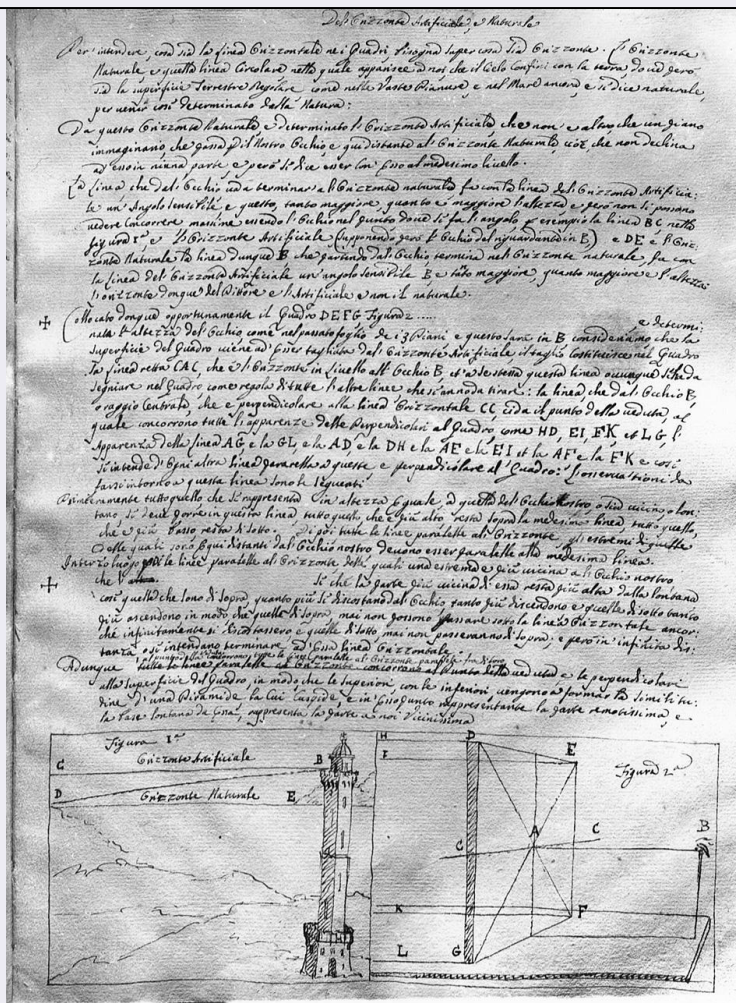 Dell Orizzonte Artificiale, e Naturale
Per intendere, cosa sia la linea Orizzontale nei Quadri bisogna saper cosa sia Orizzonte. L'Orizonte
Naturale e quella linea Circolare nella quale apparisce a noi che il Cielo Confini con la terra, dove però
sia la superficie Terrestre Regolare come nelle Vaste Pianure e nel Mare ancora, e si dice naturale,
per venir così determinato dalla Natura:
Da questo Orizonte Naturale, e determinato l'Orizzonte Artificiale, che non e altro, che un piano
immaginario che passa p il Nostro Occhio e qui distante al Orizonte Naturale, cioè che non declina
ad esso in niuna parte e però si dice esser con Esso al medesimo livello.
La linea che dal Occhio va a terminare all Orizonte naturale fa con la linea del Orizonte Artificia:
le un Angolo sensibile e questo, tanto maggiore quanto e maggiore l'altezza e però non si possono
vedere concorrere massime essendo l'Occhio nel punto dove si fa l'angolo p esempio la linea BC nella
figura Iª, e l'Orizonte Artificiale (supponendo però l'Occhio del riguardante in B) e DE e l'Oriz:
zonte Naturale la linea dunque B che partendo dal Occhio termina nell Orizonte naturale, fa con
la linea del Orizonte Artificiale un angolo sensibile B e tanto maggiore, quanto maggiore e l'altezza
l'orizonte dunque del Pittore e l'Artificiale e non il naturale.
Collocato dunque opportunamente il Quadro DEFG Figura 2 ..... e determi:
nata l'altezza del Occhio come nel passato foglio de i 3 Piani e questo sarà in B consideriamo che la
superficie del Quadro viene ad Esser tagliata dal Orizzonte Artificiale, il taglio costituisce nel Quadro
la linea retta CAC, che e l'Orizonte in livello all Occhio B et a se stessa questa linea ovunque si ha da
segniare nel Quadro come regola di tutte l'altre linee che si hanno da tirare: la linea, che dal Occhio B
o raggio Centrale, che e perpendicolare alla linea Orizzontale CC, ci da il punto della veduta, al
quale concorrono tutte l'apparenze delle Perpendicolari al Quadro, come HD, EI, FK et LG, l'
Apparenza della linea AG e la GL e la AD e la DH e la AE e la EI et la AF e la FK e così
s'intende d'Ogni altra linea paralella a queste e perpendicolare al Quadro: l'osservationi da
farsi intorno a questa linea sono le seguenti
Primieramente tutto quello che si rappresenta in altezza Eguale, a quella del Occhio Nostro o sia vicino o lon:
tano si deve porre in questa linea tutto quello, che e più alto resta sopra la medesima linea tutto quello,
che e più basso resta di sotto. Di poi tutte le linee paralelle all Orizonte, gli estremi di quelle
Delle quali sono Equidistanti dal Occhio nostro devono esser paralelle alla medesima linea.
In terzo luogo poi le linee paralelle all Orizonte delle quali una estrema e più vicina al Occhio nostro
che l' Si che la parte più vicina di essa resta più alta dalla lontana
così quelle che sono di sopra, quanto più si discostano dal Occhio tanto più discendono e quelle di sotto tanto
più ascendono in modo che quelle di sopra, mai non possono passare sotto la linea Orizzontale ancor:
che infinitamente si discostassero e quelle di sotto, mai non passeranno di sopra; e però in infinita dis:
tanza si intendano terminare, ad Essa linea Orizzontale.
Adunque al punto della veduta
alla superficie del Quadro, in modo che le superiori, con le inferiori vengono a formare la similitu:
dine d'una Piramide la Cui Cuspide, e in Esso punto rappresentante la parte remotissima, e
la base lontana da Essa, rappresenta la parte a noi Vicinissima
Figura 1ª
C Orizzonte Artificiale B
D Orizzonte Naturale E
H D E
I
Figura 2ª
A C B
C
K F
L G